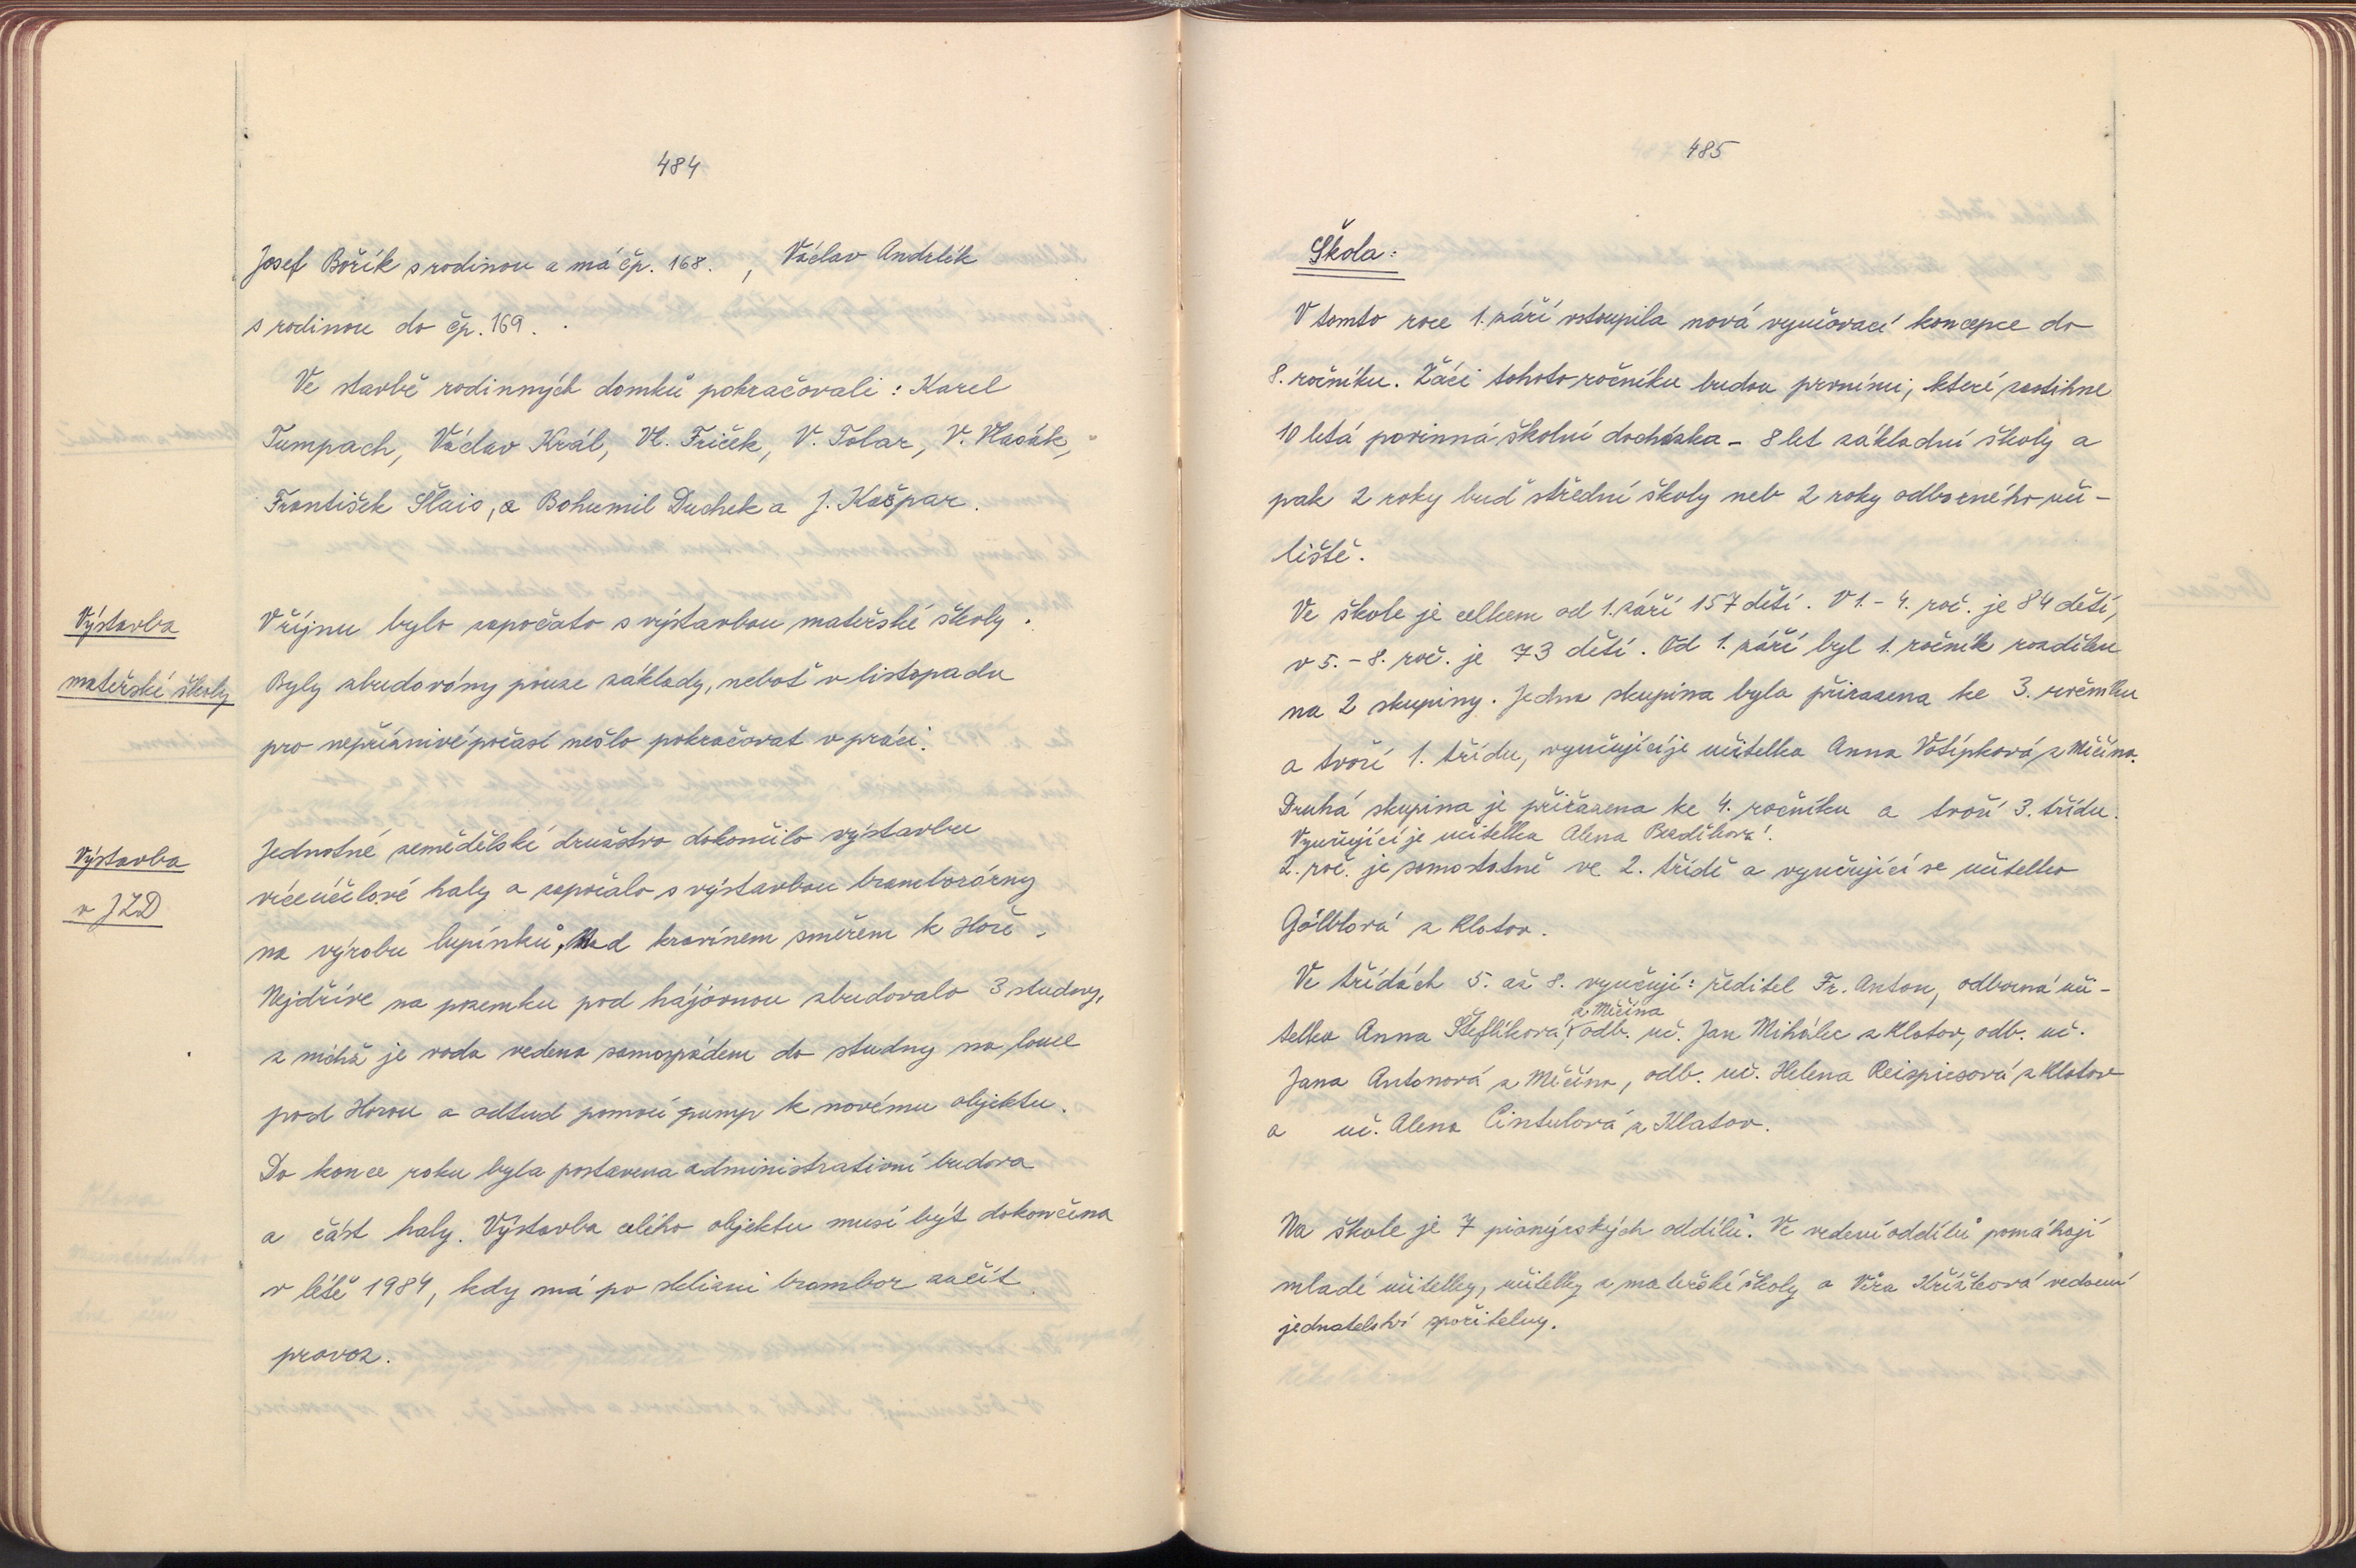 484
Josef Bořík s rodinou a má čp. 168. , Václav Andrlík
s rodinou do čp. 169.
Ve stavbě rodinných domků pokračovali: Karel
Tumpach, Václav Král, Vl. Friček, V. Tolar, V. Vlasák,
František Šlais, a Bohumil Duchek a J. Kašpar.
Výstavba
mateřské školy
V říjnu bylo započato s výstavbou mateřské školy.
Byly zbudovány pouze základy, neboť v listopadu
pro nepříznivé počasí nešlo pokračovat v práci.
Výstavba
v JZD
Jednotné zemědělské družstvo dokončilo výstavbu
víceúčelové haly a započalo s výstavbou bramborárny
na výrobu lupínků, Nad kravínem směrem k Hoře.
Nejdříve na pozemku pod hájovnou zbudovalo 3 studny,
z nichž je voda vedena samospádem do studny na louce
pod Horou a odtud pomocí pump k novému objektu.
Do konce roku byla postavena administrativní budova
a část haly. Výstavba celého objektu musí být dokončena
v létě 1984, kdy má po sklizni brambor začít
provoz.
485
Škola:
V tomto roce 1. září vstoupila nová vyučovací koncepce do
8. ročníku. Žáci tohoto ročníku budou prvními, které zastihne
10 letá povinná školní docházka - 8 let základní školy a
pak 2 roky buď střední školy neb 2 roky odborného uči-
liště.
Ve škole je celkem od 1. září 157 dětí. V 1. - 4. roč. je 84 dětí,
v 5. - 8. roč. je 73 dětí. Od 1. září byl 1. ročník rozdělen
na 2 skupiny. Jedna skupina byla přiřazena ke 3. ročníku
a tvoří 1. třídu, vyučující je učitelka Anna Votípková z Měčína.
Druhá skupina je přiřazena ke 4. ročníku a tvoří 3. třídu.
Vyučující je učitelka Alena Bezděková.
2. roč. je samostatně ve 2. třídě a vyučující je učitelka
Gölblová z Klatov.
Ve třídách 5. až 8. vyučují: ředitel Fr. Anton, odborná uči-
telka Anna Šteflíková z Měčína, odb. uč. Jan Mihálec z Klatov, odb. uč.
Jana Antonová z Měčína, odb. uč. Helena Reispiesová z Klatov
a uč. Alena Cintulová z Klatov.
Na škole je 7 pionýrských oddílů. Ve vedení oddílů pomáhají
mladé učitelky, učitelky z mateřské školy a Věra Křížková vedoucí
jednatelství spořitelny.